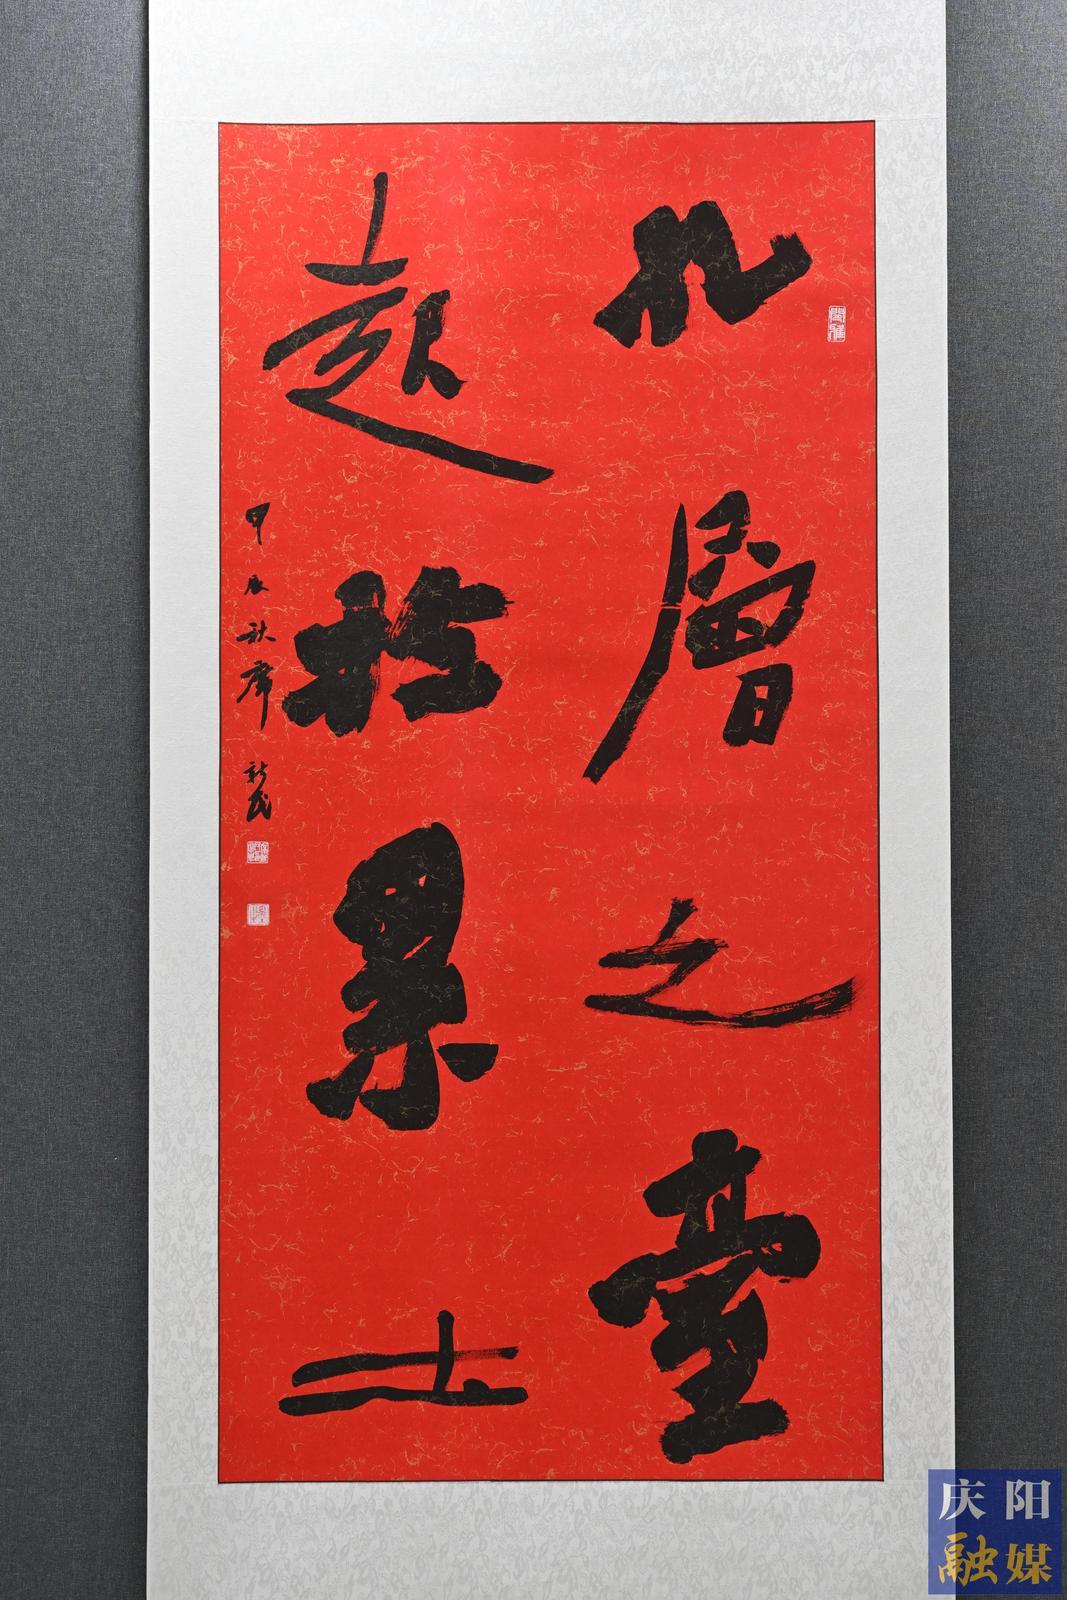 九層之臺
起於累土
甲辰秋席新民
庆阳
融媒